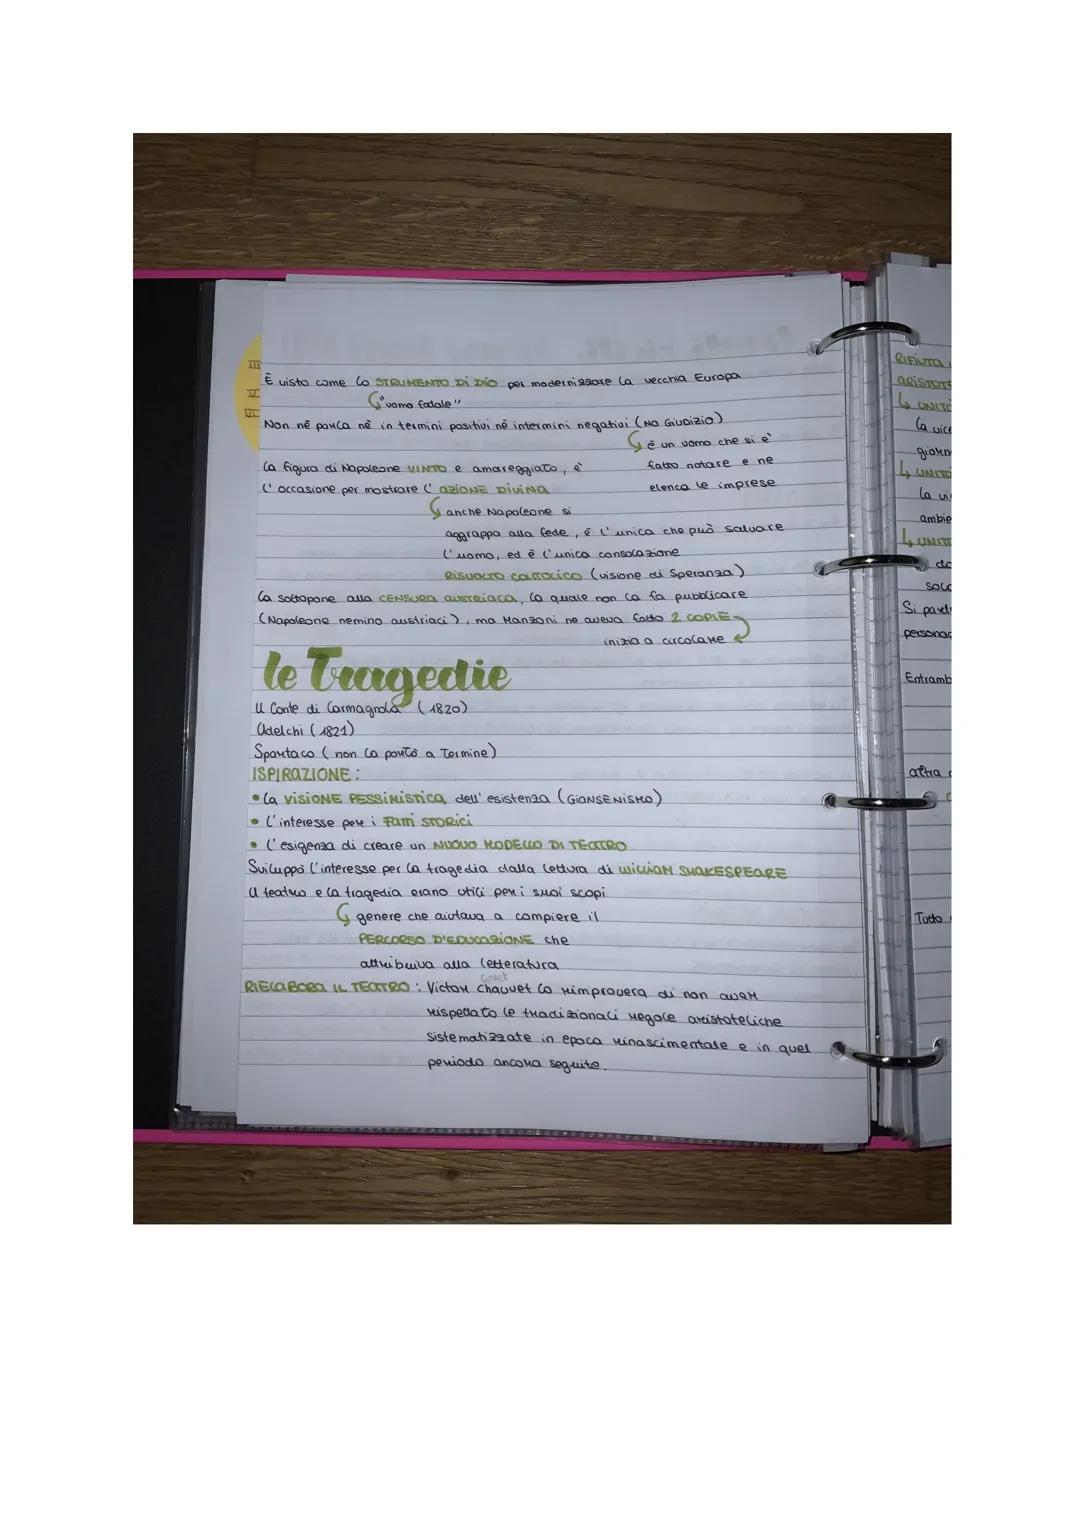 III
V
VI
È visto come lo STRUMENTO DI DIO per modernizzare la vecchia Europa
"uomo fatale"
Non nè parla nè in termini positivi nè intermini negativi (NO GIUDIZIO)
è un uomo che si e'
fatto notare e ne
elenca le imprese
la figura di Napoleone VINTO e amareggiato, e'
l'occasione per mostrare l'AZIONE DIVINA
anche Napoleone si
aggrappa alla fede, è l'unica che può salvare
l'uomo, ed è l'unica consolazione
RISVOLTO CATTOLICO (visione di Speranza)
la sottopone alla CENSURA AUSTRIACA, la quale non la fa pubblicare
(Napoleone nemino austriaci), ma Manzoni ne aveva fatto 2 COPIE
inizia a circolare
le Tragedie
Il Conte di Carmagnola (1820)
Adelchi (1821)
Spartaco (non la portò a Termine)
ISPIRAZIONE:
• la VISIONE PESSIMISTICA dell'esistenza (GIANSENISMO)
• l'interesse per i FATTI STORICI
• l'esigenza di creare un NUOVO MODELLO DI TEATRO
Sviluppò l'interesse per la tragedia dalla lettura di WILLIAM SHAKESPEARE
Il teatro e la tragedia erano utili per i suoi scopi
genere che aiutava a compiere il
PERCORSO D'EDUCAZIONE che
attribuiva alla letteratura
RIELABORA IL TEATRO: Victor Chauvet lo rimprovera di non aver
rispettato le tradizionali regole aristoteliche
sistematizzate in epoca rinascimentale e in quel
periodo ancora seguite.
RIFIUTA
ARISTOT
UNITÀ
la vice
giorn
UNITÀ
la vi
ambie
UNIT
da
solo
Si parl
personag
Entramb
altra
Tutto